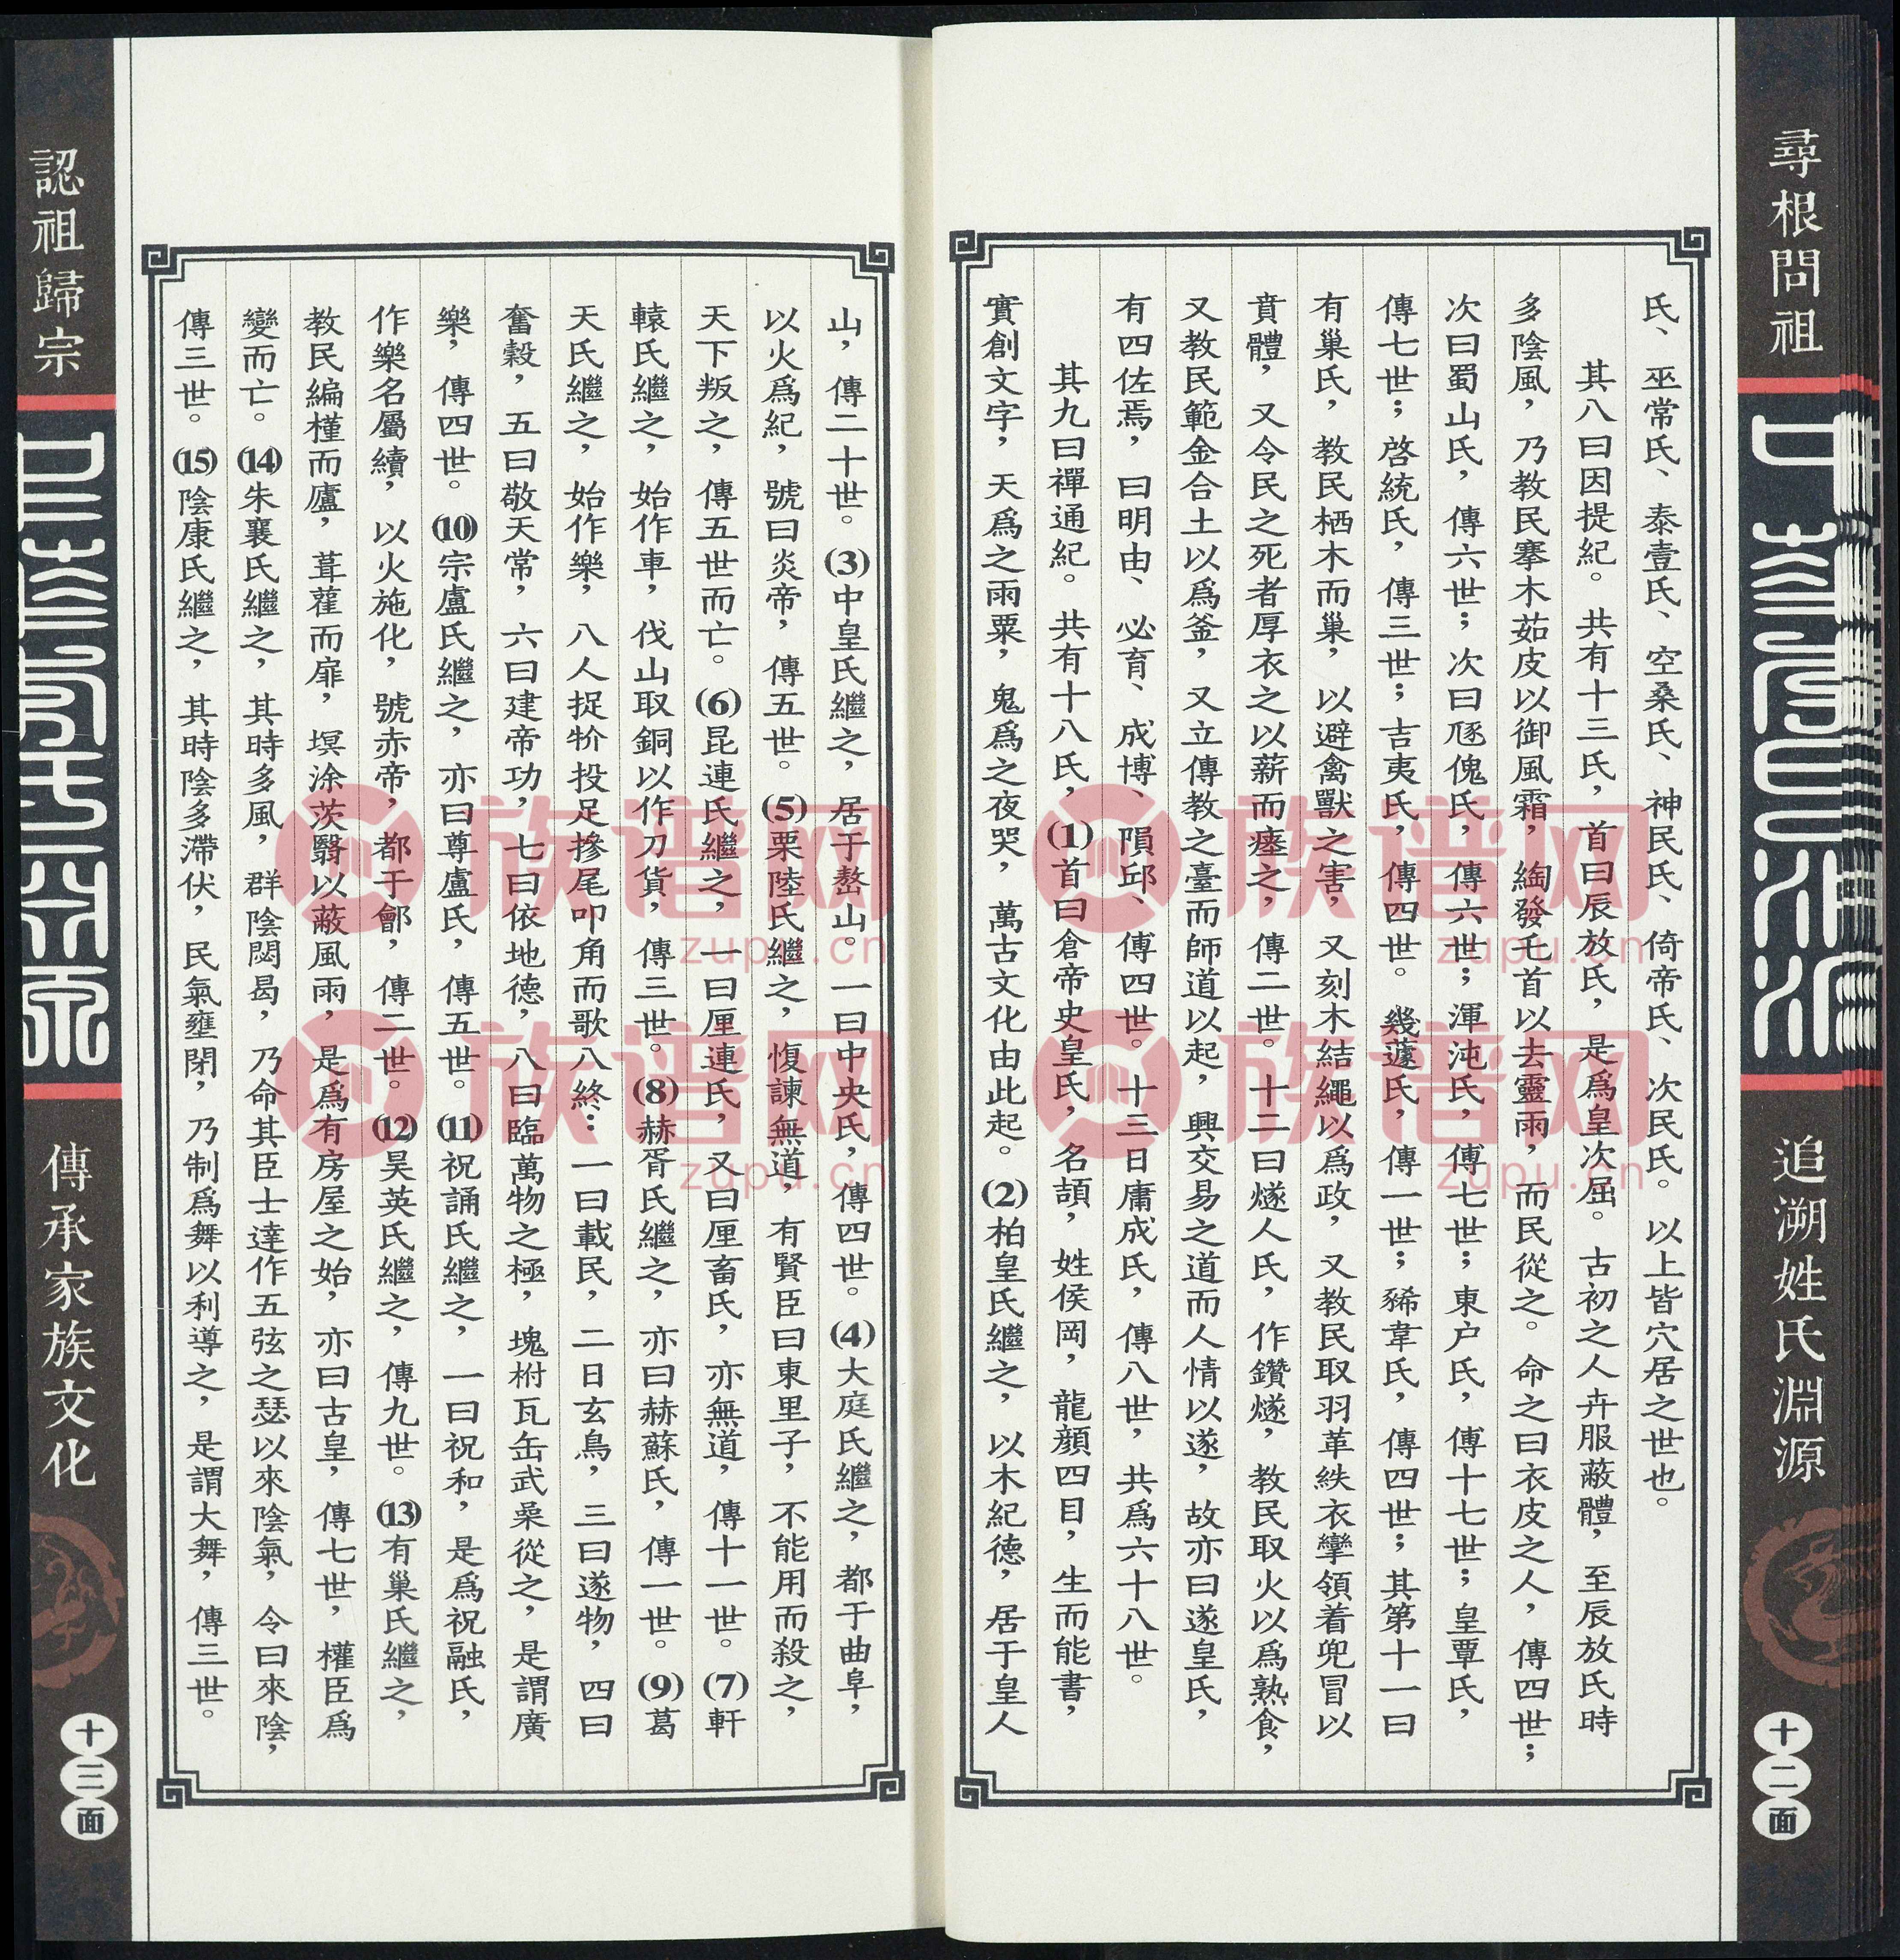 尋根問祖
追溯姓氏淵源
十二面
氏、巫常氏、泰壹氏、空桑氏、神民氏、倚帝氏、次民氏。以上皆穴居之世也。
其八曰因提紀。共有十三氏，首曰辰放氏，是爲皇次屈。古初之人卉服蔽體，至辰放氏時
多陰風，乃教民搴木茹皮以御風霜，綯發乇首以去靈雨，而民從之。命之曰衣皮之人，傳四世；
次曰蜀山氏，傳六世；次曰豗傀氏，傳六世；渾沌氏，傳七世；東户氏，傳十七世；皇覃氏，
傳七世；啓統氏，傳三世；吉夷氏，傳四世。幾蘧氏，傳一世；豨韋氏，傳四世；其第十一曰
有巢氏，教民栖木而巢，以避禽獸之害，又刻木結繩以爲政，又教民取羽革紩衣攣領着兜冒以
賁體，又令民之死者厚衣之以薪而瘞之，傳二世。十二曰燧人氏，作鑽燧，教民取火以爲熟食，
又教民範金合土以爲釜，又立傳教之臺而師道以起，興交易之道而人情以遂，故亦曰遂皇氏，
有四佐焉，曰明由、必育、成博、隕邱、傳四世。十三曰庸成氏，傳八世，共爲六十八世。
其九曰禪通紀。共有十八氏，(1)首曰倉帝史皇氏，名頡，姓侯岡，龍顔四目，生而能書，
實創文字，天爲之雨粟，鬼爲之夜哭，萬古文化由此起。(2)柏皇氏繼之，以木紀德，居于皇人
山，傳二十世。(3)中皇氏繼之，居于嶅山。一曰中央氏，傳四世。(4)大庭氏繼之，都于曲阜，
以火爲紀，號曰炎帝，傳五世。(5)栗陸氏繼之，愎諫無道，有賢臣曰東里子，不能用而殺之，
天下叛之，傳五世而亡。(6)昆連氏繼之，一曰厘連氏，又曰厘畜氏，亦無道，傳十一世。(7)軒
轅氏繼之，始作車，伐山取銅以作刀貨，傳三世。(8)赫胥氏繼之，亦曰赫蘇氏，傳一世。(9)葛
天氏繼之，始作樂，八人捉牞投足摻尾叩角而歌八終：一曰載民，二曰玄鳥，三曰遂物，四曰
奮穀，五曰敬天常，六曰建帝功，七曰依地德，八曰臨萬物之極，塊柎瓦缶武喿從之，是謂廣
樂，傳四世。(10)宗盧氏繼之，亦曰尊盧氏，傳五世。(11)祝誦氏繼之，一曰祝和，是爲祝融氏，
作樂名屬續，以火施化，號赤帝，都于鄶，傳二世。(12)昊英氏繼之，傳九世。(13)有巢氏繼之，
教民編槿而廬，葺藋而扉，塓涂茨翳以蔽風雨，是爲有房屋之始，亦曰古皇，傳七世，權臣爲
變而亡。(14)朱襄氏繼之，其時多風，群陰閼曷，乃命其臣士達作五弦之瑟以來陰氣，令曰來陰，
傳三世。(15)陰康氏繼之，其時陰多滯伏，民氣壅閉，乃制爲舞以利導之，是謂大舞，傳三世。
認祖歸宗
傳承家族文化
十三面
族谱网
zupu.cn
族谱网
zupu.cn
族谱网
zupu.cn
族谱网
zupu.cn